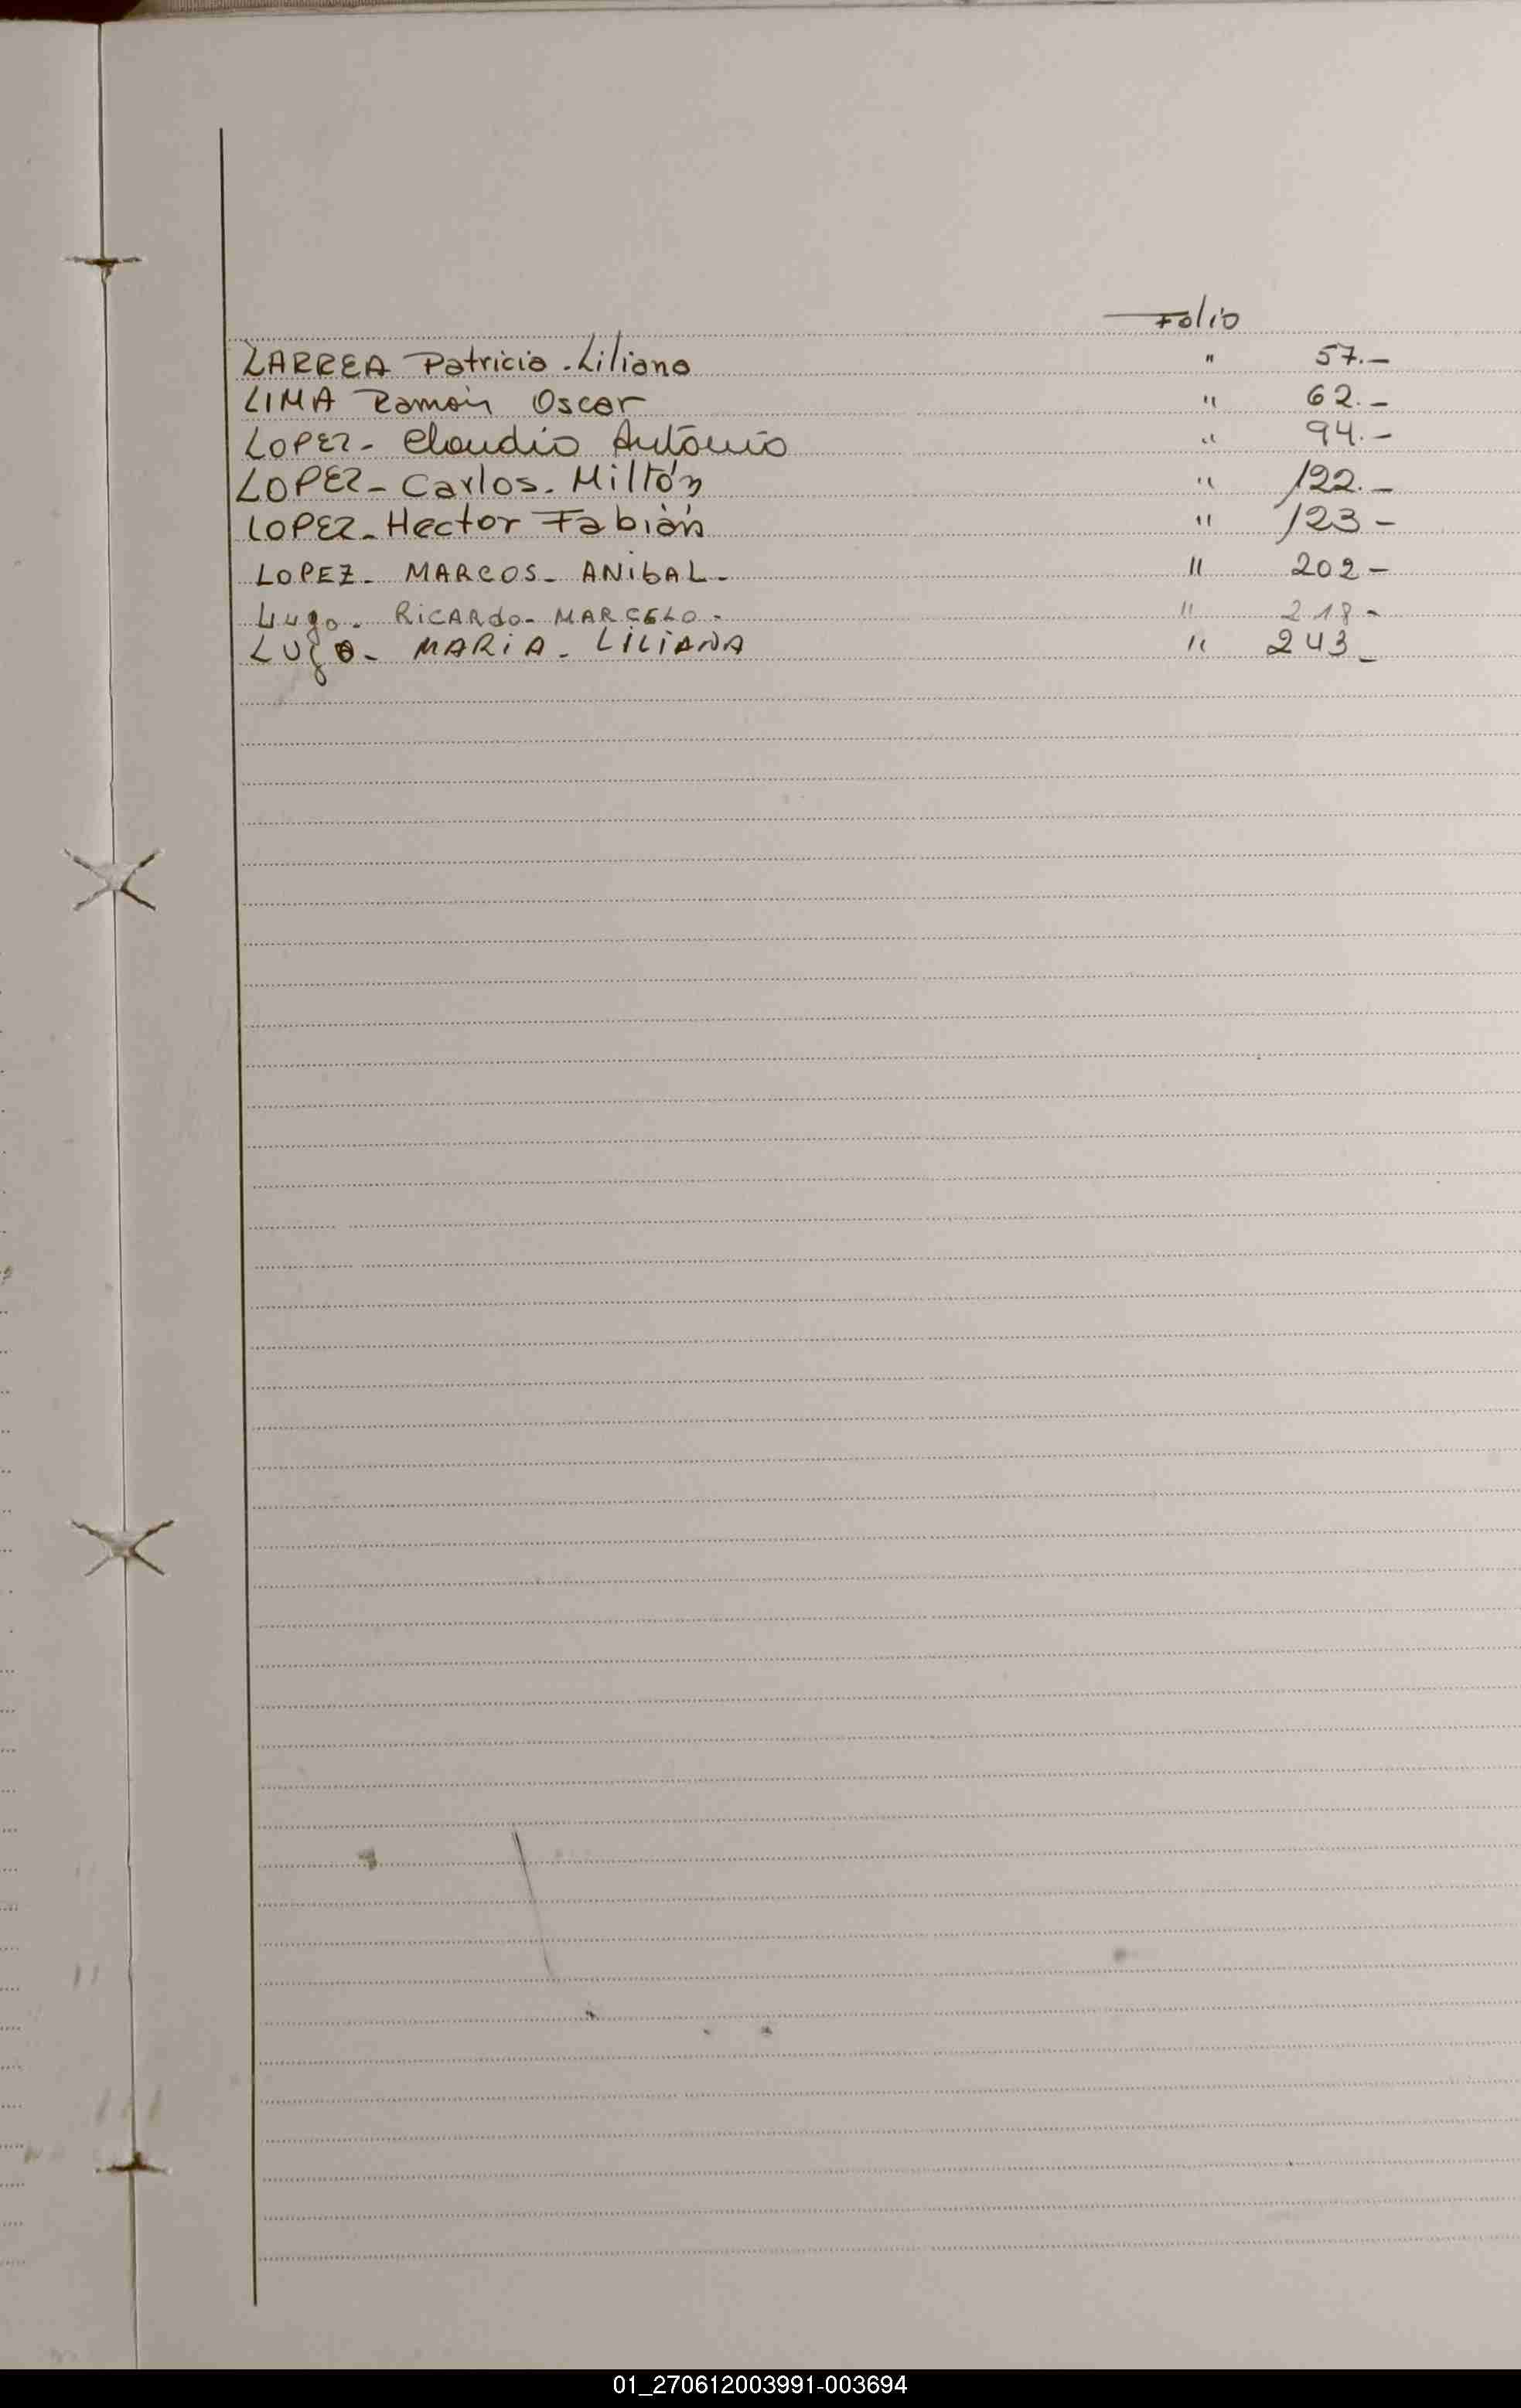 Folio
LARREA Patricia - Liliana " 57.-
LIMA Ramón Oscar " 62.-
LOPEZ - Claudio Antonio " 94.-
LOPEZ - Carlos - Miltón " 122.-
LOPEZ - Hector Fabián " 123 -
LOPEZ - MARCOS - ANIBAL - " 202 -
Lugo - RICARdo - MARCELO - " 218 -
LUgo - MARIA - LILIANA " 243 -
01_270612003991-003694